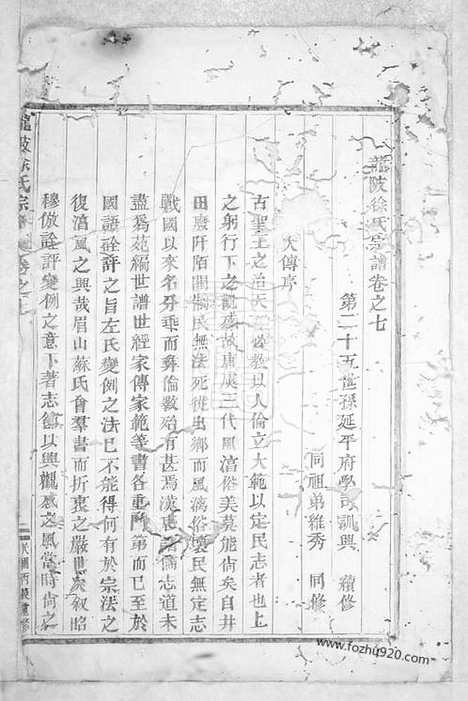 龍陂徐氏宗譜卷之七
第二十五世孫延平府學訓興 續修
同祖弟雅秀 同修
大傳序
古聖王之治天 必教以人倫立大範以定民志者也上
之躬行下之觀感故唐虞三代風淯俗美莫能尙矣自井
田廢阡陌開 民無法死徙出鄉而風漓俗壞民無定志
戰國以來名分乖而彝倫斁殆有甚焉漢 儒志道未
盡爲苑編世譜世經家傳家範等書各重門第而已至於
國語銓評之旨左氏變例之法已不能得何有於宗法之
復淯風之興哉眉山蘇氏會羣書而折衷之嚴世 叙昭
穆倣詮評變例之意下著志銘以興觀感之風當時尙之
徐氏宗譜 卷之七
民國丙 重修
www.fozhu920.com